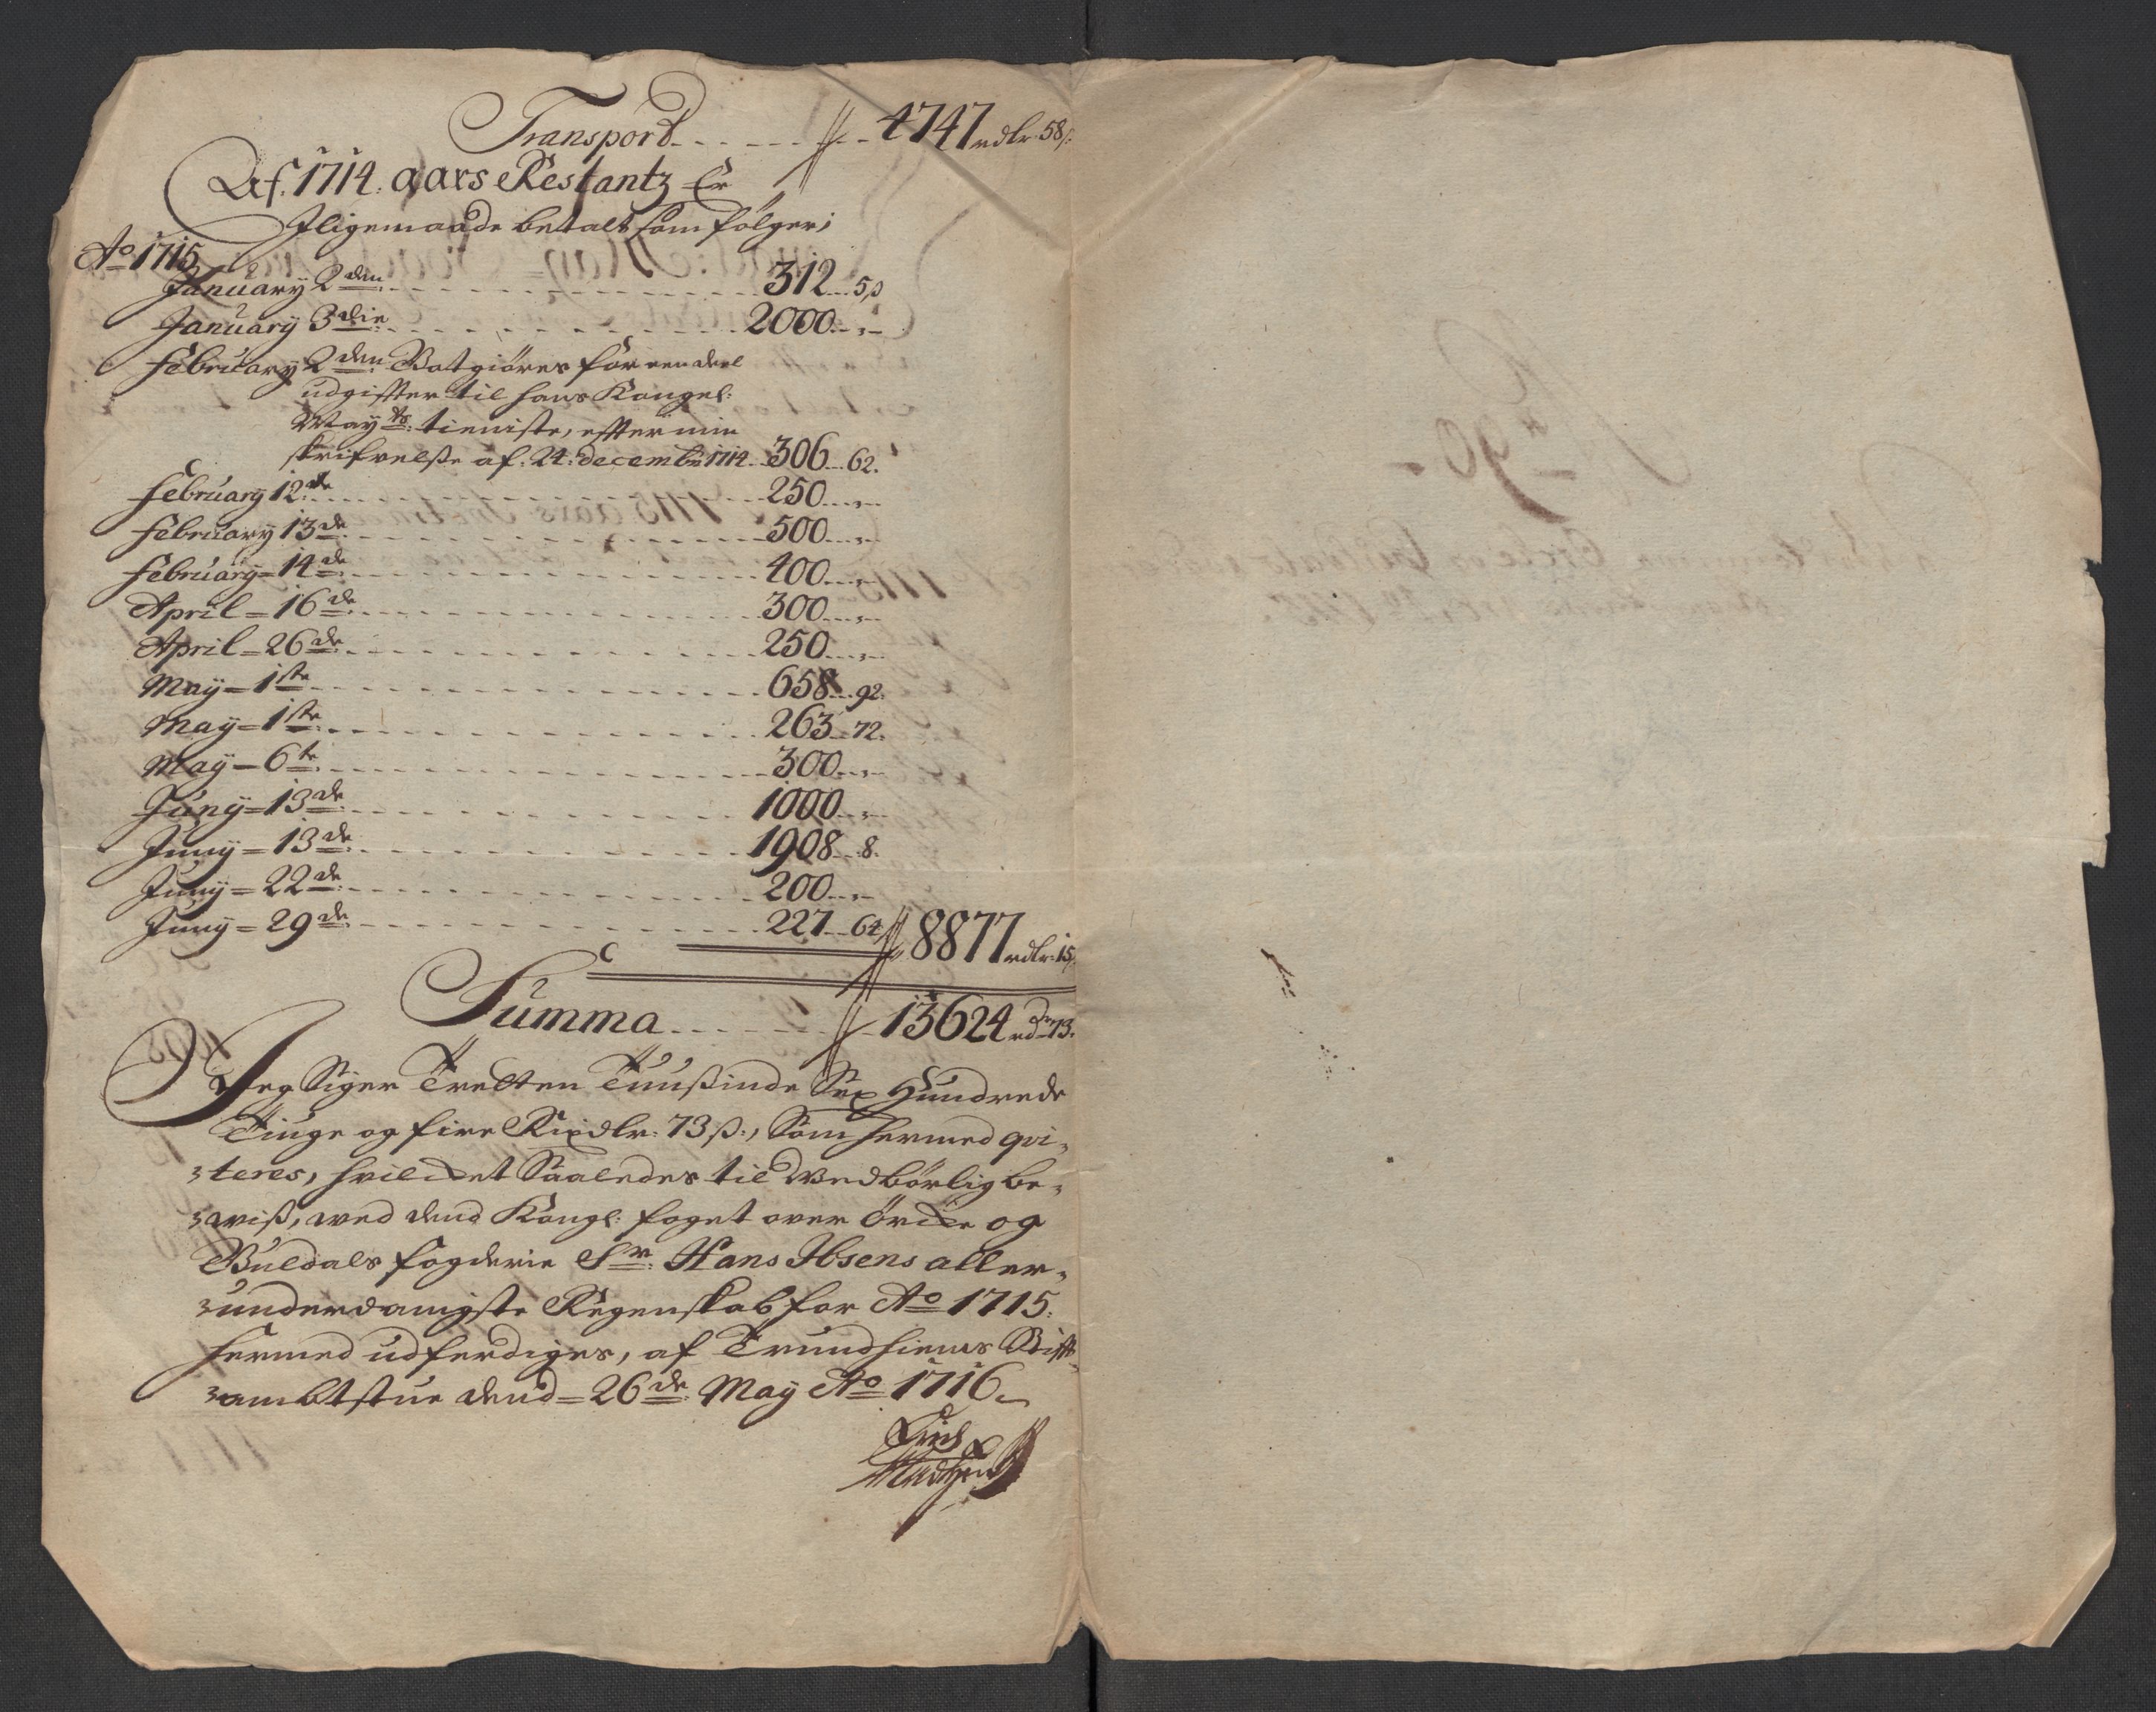 Transport - - - - - 4747 rdlr 58 ß:
Af. 1714. aars Restantz Er
Iligemaade betalt som følger;
Ao 1715
January 2den - - - 312 - 5 ß
January 3die - - - 2000 - „ -
February 2den Gotgiöres for een deel
udgiffter til hans Kongel:
Mayts: tieniste, effter min
skrifvelße af: 24: decembr: 1714 - 306 - 62.
February 12de - - - 250 - „ -
February 13de - - - 500 - „ -
February = 14de - - - 400 - „ -
April = 16de - - - 300 - „ -
April = 26de - - - 250 - „ -
May = 1ste - - - 658 - 92.
May = 1ste - - - 263 - 72.
May = 6te - - - 300 - „ -
Juny = 13de - - - 1000 - „ -
Juny = 13de - - - 1908 - 8.
Juny = 22de - - - 200 - „ -
Juny = 29de - - - 227 - 64 8877 rdlr: 15
Summa - - - - 13624 rdr 73.
Jeg Siger Tretten Tuußinde Sex Hundrede
Tiuge og fire Rixdlr: 73 ß:, Som hermed qvi-
-teres, hvilcket Saaledes til Vedbørlig be-
-wiß, wed dend Kongl: foget over örcke og
Guldals fogderie Sr: Hans Ibsens aller-
-underdanigste Regenskab for Ao 1715:
hermed udferdiges, af Trundhiems Stift
-ambtstue dend = 26de May Ao 1716
No 90